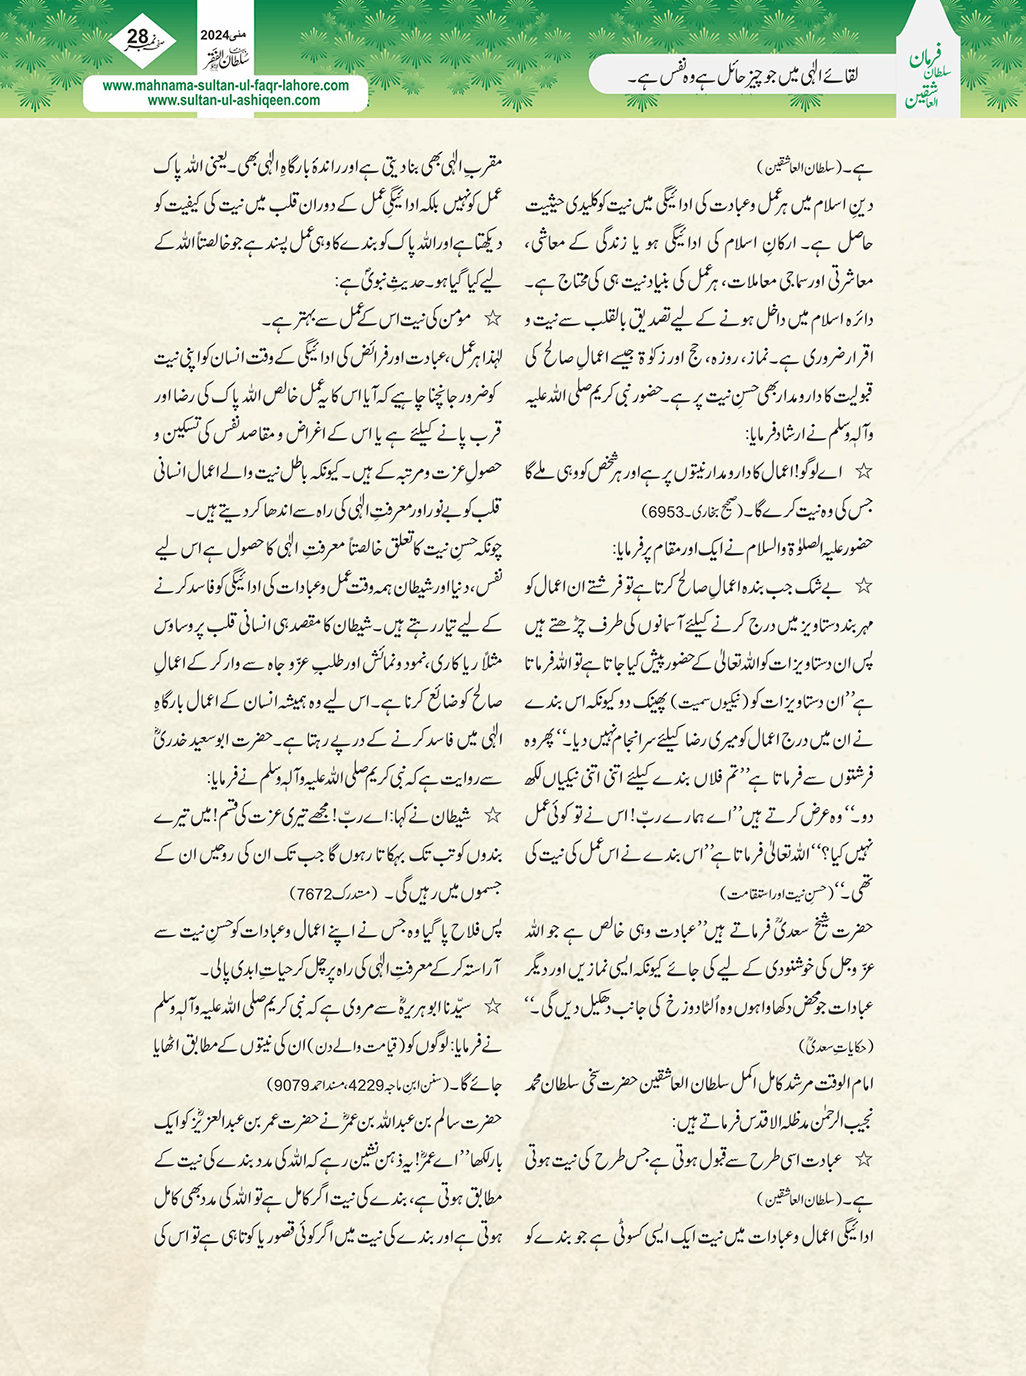 فرمان
سلطان
العاشقین
لقائے الٰہی میں جو چیز حائل ہے وہ نفس ہے۔
مئی 2024
ماہنامہ سلطان الفقر لاہور
صفحہ نمبر 28
www.mahnama-sultan-ul-faqr-lahore.com
www.sultan-ul-ashiqeen.com
ہے۔ (سلطان العاشقین)
دینِ اسلام میں ہر عمل و عبادت کی ادائیگی میں نیت کو کلیدی حیثیت
حاصل ہے۔ ارکانِ اسلام کی ادائیگی ہو یا زندگی کے معاشی،
معاشرتی اور سماجی معاملات، ہر عمل کی بنیاد نیت ہی کی محتاج ہے۔
دائرہ اسلام میں داخل ہونے کے لیے تصدیق بالقلب سے نیت و
اقرار ضروری ہے۔ نماز، روزہ، حج اور زکوٰۃ جیسے اعمالِ صالح کی
قبولیت کا دارومدار بھی حسنِ نیت پر ہے۔ حضور نبی کریم صلی اللہ علیہ
وآلہٖ وسلم نے ارشاد فرمایا:
☆ اے لوگو! اعمال کا دارومدار نیتوں پر ہے اور ہر شخص کو وہی ملے گا
جس کی وہ نیت کرے گا۔ (صحیح بخاری۔6953)
حضور علیہ الصلوٰۃ والسلام نے ایک اور مقام پر فرمایا:
☆ بے شک جب بندہ اعمالِ صالح کرتا ہے تو فرشتے ان اعمال کو
مہر بند دستاویز میں درج کرنے کیلئے آسمانوں کی طرف چڑھتے ہیں
پس ان دستاویزات کو اللہ تعالیٰ کے حضور پیش کیا جاتا ہے تو اللہ فرماتا
ہے ’’ان دستاویزات کو (نیکیوں سمیت) پھینک دو کیونکہ اس بندے
نے ان میں درج اعمال کو میری رضا کیلئے سرانجام نہیں دیا۔‘‘ پھر وہ
فرشتوں سے فرماتا ہے ’’تم فلاں بندے کیلئے اتنی اتنی نیکیاں لکھ
دو۔‘‘ وہ عرض کرتے ہیں ’’اے ہمارے ربّ! اس نے تو کوئی عمل
نہیں کیا؟‘‘ اللہ تعالیٰ فرماتا ہے ’’اس بندے نے اس عمل کی نیت کی
تھی۔‘‘ (حسنِ نیت اور استقامت)
حضرت شیخ سعدیؒ فرماتے ہیں ’’عبادت وہی خالص ہے جو اللہ
عزّوجل کی خوشنودی کے لیے کی جائے کیونکہ ایسی نمازیں اور دیگر
عبادات جو محض دکھاوا ہوں وہ اُلٹا دوزخ کی جانب دھکیل دیں گی۔‘‘
(حکایاتِ سعدیؒ)
امام الوقت مرشد کامل اکمل سلطان العاشقین حضرت سخی سلطان محمد
نجیب الرحمٰن مدظلہ الاقدس فرماتے ہیں:
☆ عبادت اسی طرح سے قبول ہوتی ہے جس طرح کی نیت ہوتی
ہے۔ (سلطان العاشقین)
ادائیگی اعمال و عبادات میں نیت ایک ایسی کسوٹی ہے جو بندے کو
مقربِ الٰہی بھی بنا دیتی ہے اور راندۂ بارگاہِ الٰہی بھی۔ یعنی اللہ پاک
عمل کو نہیں بلکہ ادائیگی عمل کے دوران قلب میں نیت کی کیفیت کو
دیکھتا ہے اور اللہ پاک کو بندے کا وہی عمل پسند ہے جو خالصتاً اللہ کے
لیے کیا گیا ہو۔ حدیثِ نبویؐ ہے:
☆ مومن کی نیت اس کے عمل سے بہتر ہے۔
لہٰذا ہر عمل، عبادت اور فرائض کی ادائیگی کے وقت انسان کو اپنی نیت
کو ضرور جانچنا چاہیے کہ آیا اس کا یہ عمل خالص اللہ پاک کی رضا اور
قرب پانے کیلئے ہے یا اس کے اغراض و مقاصد نفس کی تسکین و
حصولِ عزت و مرتبہ کے ہیں۔ کیونکہ باطل نیت والے اعمال انسانی
قلب کو بے نور اور معرفتِ الٰہی کی راہ سے اندھا کر دیتے ہیں۔
چونکہ حسنِ نیت کا تعلق خالصتاً معرفتِ الٰہی کا حصول ہے اس لیے
نفس، دنیا اور شیطان ہمہ وقت عمل و عبادات کی ادائیگی کو فاسد کرنے
کے لیے تیار رہتے ہیں۔ شیطان کا مقصد ہی انسانی قلب پر وساوس
مثلاً ریاکاری، نمود و نمائش اور طلبِ عزّ و جاہ سے وار کر کے اعمالِ
صالح کو ضائع کرنا ہے۔ اس لیے وہ ہمیشہ انسان کے اعمال بارگاہِ
الٰہی میں فاسد کرنے کے درپے رہتا ہے۔ حضرت ابوسعید خدریؓ
سے روایت ہے کہ نبی کریم صلی اللہ علیہ وآلہٖ وسلم نے فرمایا:
☆ شیطان نے کہا: اے ربّ! مجھے تیری عزت کی قسم! میں تیرے
بندوں کو تب تک بہکاتا رہوں گا جب تک ان کی روحیں ان کے
جسموں میں رہیں گی۔ (مستدرک 7672)
پس فلاح پا گیا وہ جس نے اپنے اعمال و عبادات کو حسنِ نیت سے
آراستہ کر کے معرفتِ الٰہی کی راہ پر چل کر حیاتِ ابدی پا لی۔
☆ سیّدنا ابوہریرہؓ سے مروی ہے کہ نبی کریم صلی اللہ علیہ وآلہٖ وسلم
نے فرمایا: لوگوں کو (قیامت والے دن) ان کی نیتوں کے مطابق اٹھایا
جائے گا۔ (سنن ابنِ ماجہ 4229، مسند احمد 9079)
حضرت سالم بن عبداللہ بن عمرؓ نے حضرت عمر بن عبدالعزیزؓ کو ایک
بار لکھا ’’اے عمرؓ! یہ ذہن نشین رہے کہ اللہ کی مدد بندے کی نیت کے
مطابق ہوتی ہے، بندے کی نیت اگر کامل ہے تو اللہ کی مدد بھی کامل
ہوتی ہے اور بندے کی نیت میں اگر کوئی قصور یا کوتاہی ہے تو اس کی